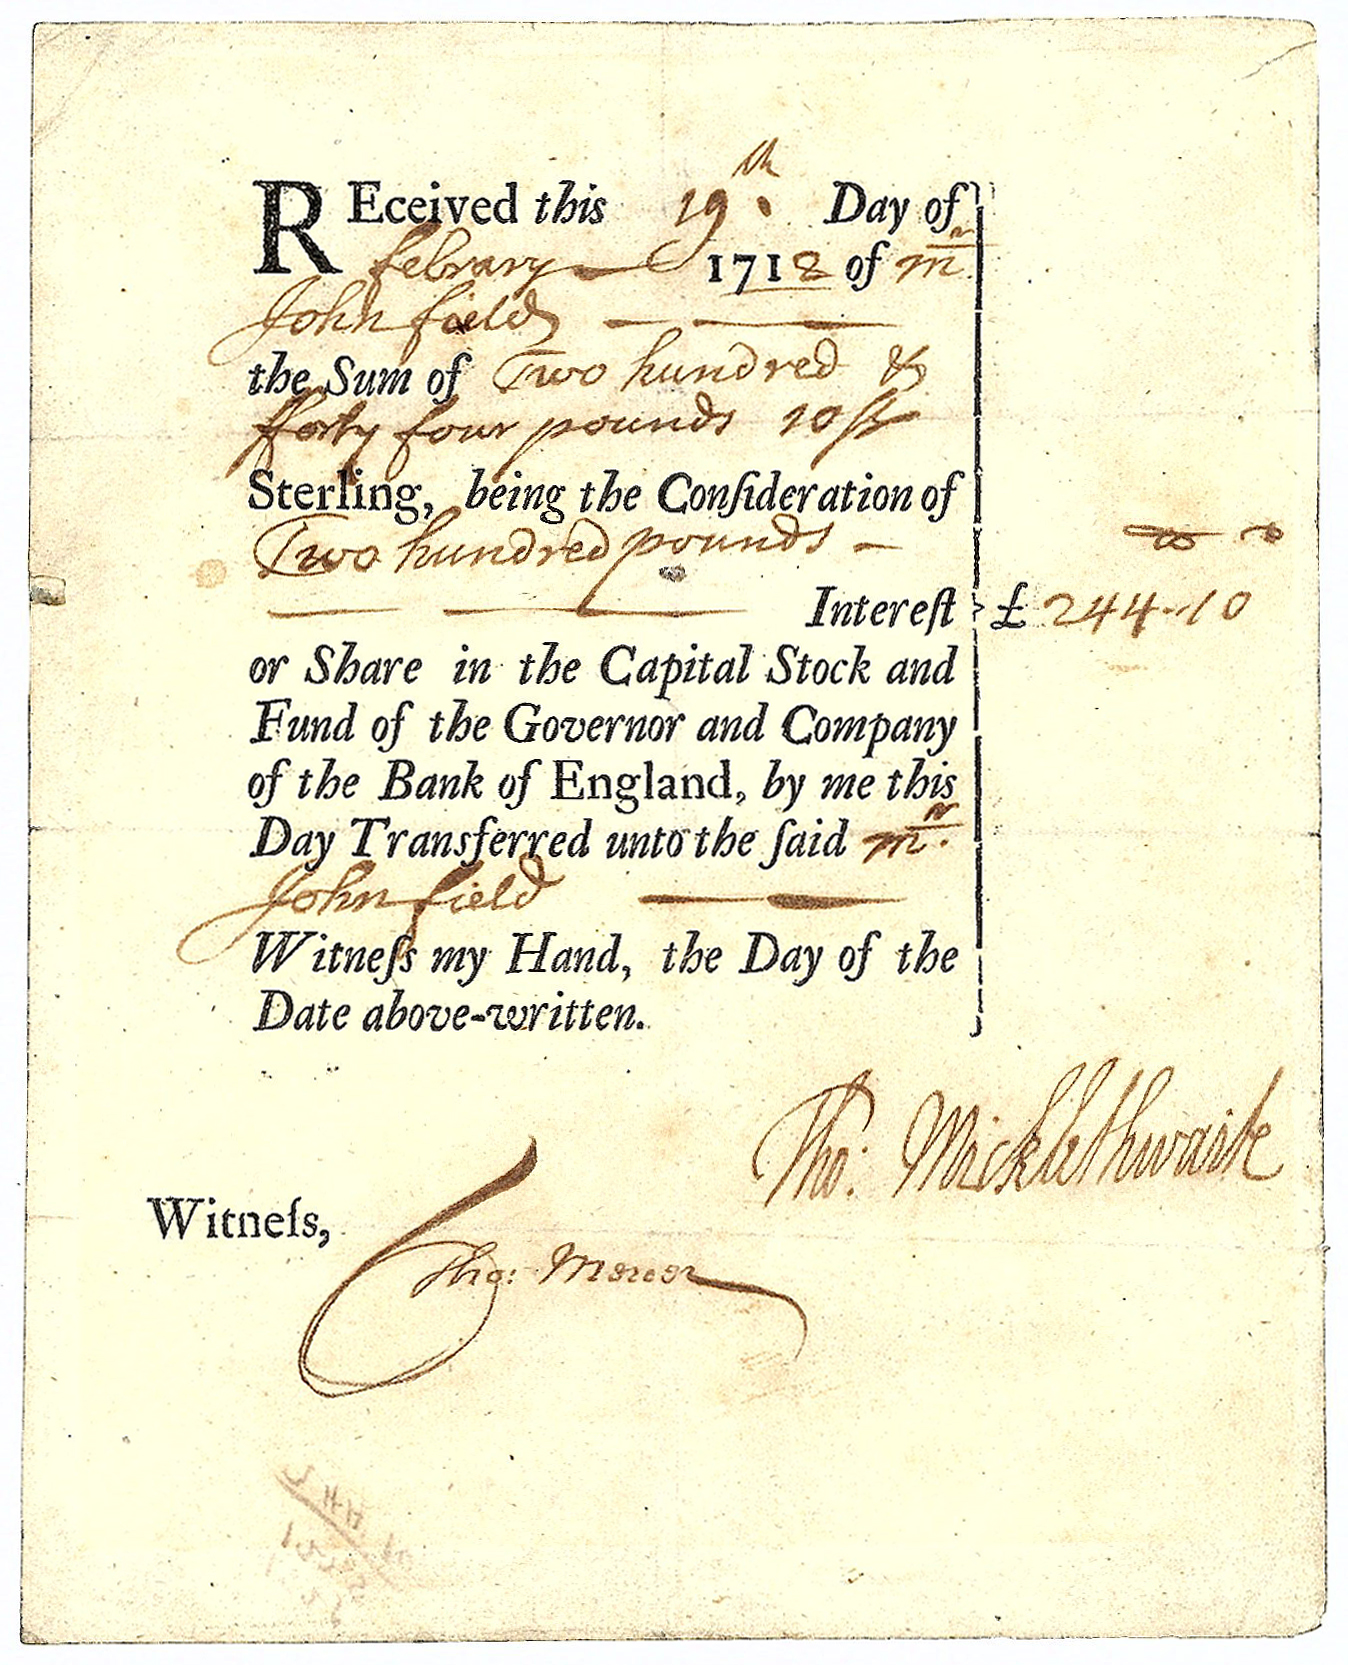 REceived this 19th. Day of
febrary 1718 of mr
John field
the Sum of Two hundred &
fforty four pounds 10ss
Sterling, being the Conſideration of
Two hundred pounds
Intereſt £ 244-10
or Share in the Capital Stock and
Fund of the Governor and Company
of the Bank of England, by me this
Day Transferred unto the ſaid mr.
John field
Witneſs my Hand, the Day of the
Date above-written.
Tho: Micklethwaite
Witneſs,
Tho: Mercer